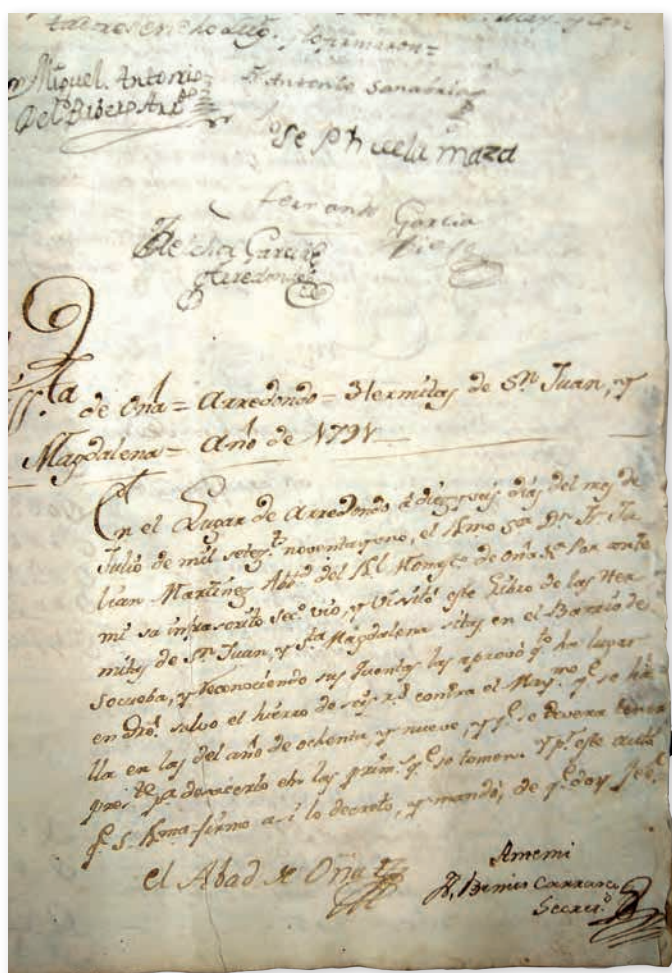 tadores en dho Lug.r y lo firmaron=
Miguel Antonio
del Ribero Arr.do
D. Antonio Sanabrias
Joseph de la maza
Fernando Garcia
Melchor Garcia
Arredondo
V.ta de Oña = Arredondo = Hermitas de Sn Juan, y
Magdalena = Año de 1791
En el Lugar de Arredondo à diez y seis dias del mes de
Julio de mil seteg.s noventa y uno, el Ilmo Sor Dn Fr. Ju
lian Martinez Abd del Rl Monast.o de Oña Por ante
mi su infrascrito Sec.o vio, y Visitó este Libro de las Her
mitas de Sn Juan, y Sta Magdalena sitas en el Barrio de
Socueba, y reconociendo sus Quentas las aprovó qto ha lugar
en dro. salvo el hierro de seis rs contra el May.mo q.e se ha
lla en las del año de ochenta y nueve, y q.e se devera tener
pres.te p.a deshacerlo en las prim.s q.e se tomen. Y p.r este auto
q.e S. Ilma firmo asi lo decretò, y mandó, de q.e doy fee=
el Abad de Oña
Ante mi
Fr. Benito Carranza
Secret.o